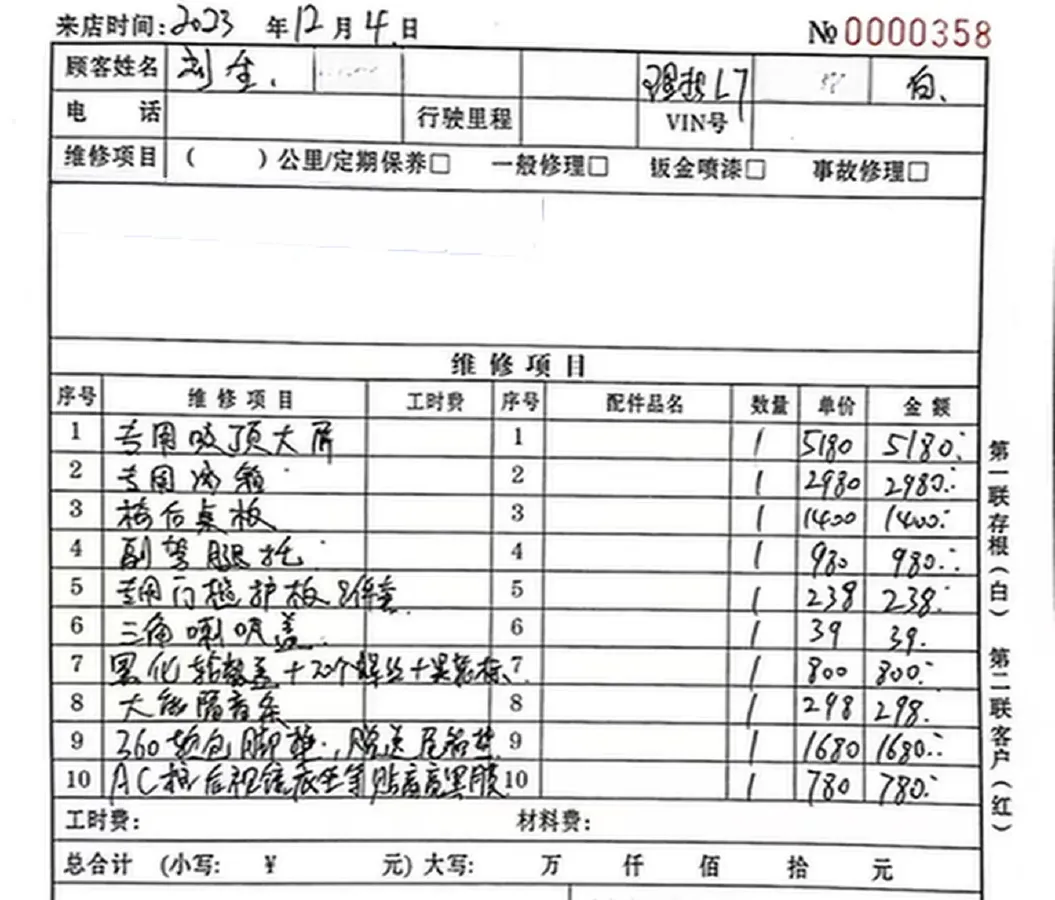 来店时间: 2023 年 12 月 4 日 № 0000358
顾客姓名 刘生. 理想L7 白.
电 话 行驶里程 VIN号
维修项目 ( ) 公里/定期保养□ 一般修理□ 钣金喷漆□ 事故修理□
维修项目
序号 维修项目 工时费 序号 配件品名 数量 单价 金额
1 专用吸顶大屏 1 1 5180 5180
2 专用冰箱 2 1 2980 2980
3 椅后桌板 3 1 1400 1400
4 副驾腿托 4 1 980 980
5 专用门槛护板8件套 5 1 238 238
6 三角喇叭盖 6 1 39 39
7 黑化轮毂盖+20个螺丝+黑轮标 7 1 800 800
8 大能隔音条 8 1 298 298
9 360软包脚垫,赠送尾箱垫 9 1 1680 1680
10 AC柱后视镜底座等贴高亮黑膜 10 1 780 780
工时费: 材料费:
总合计 (小写: ¥ 元) 大写: 万 仟 佰 拾 元
第一联存根(白) 第二联客户(红)